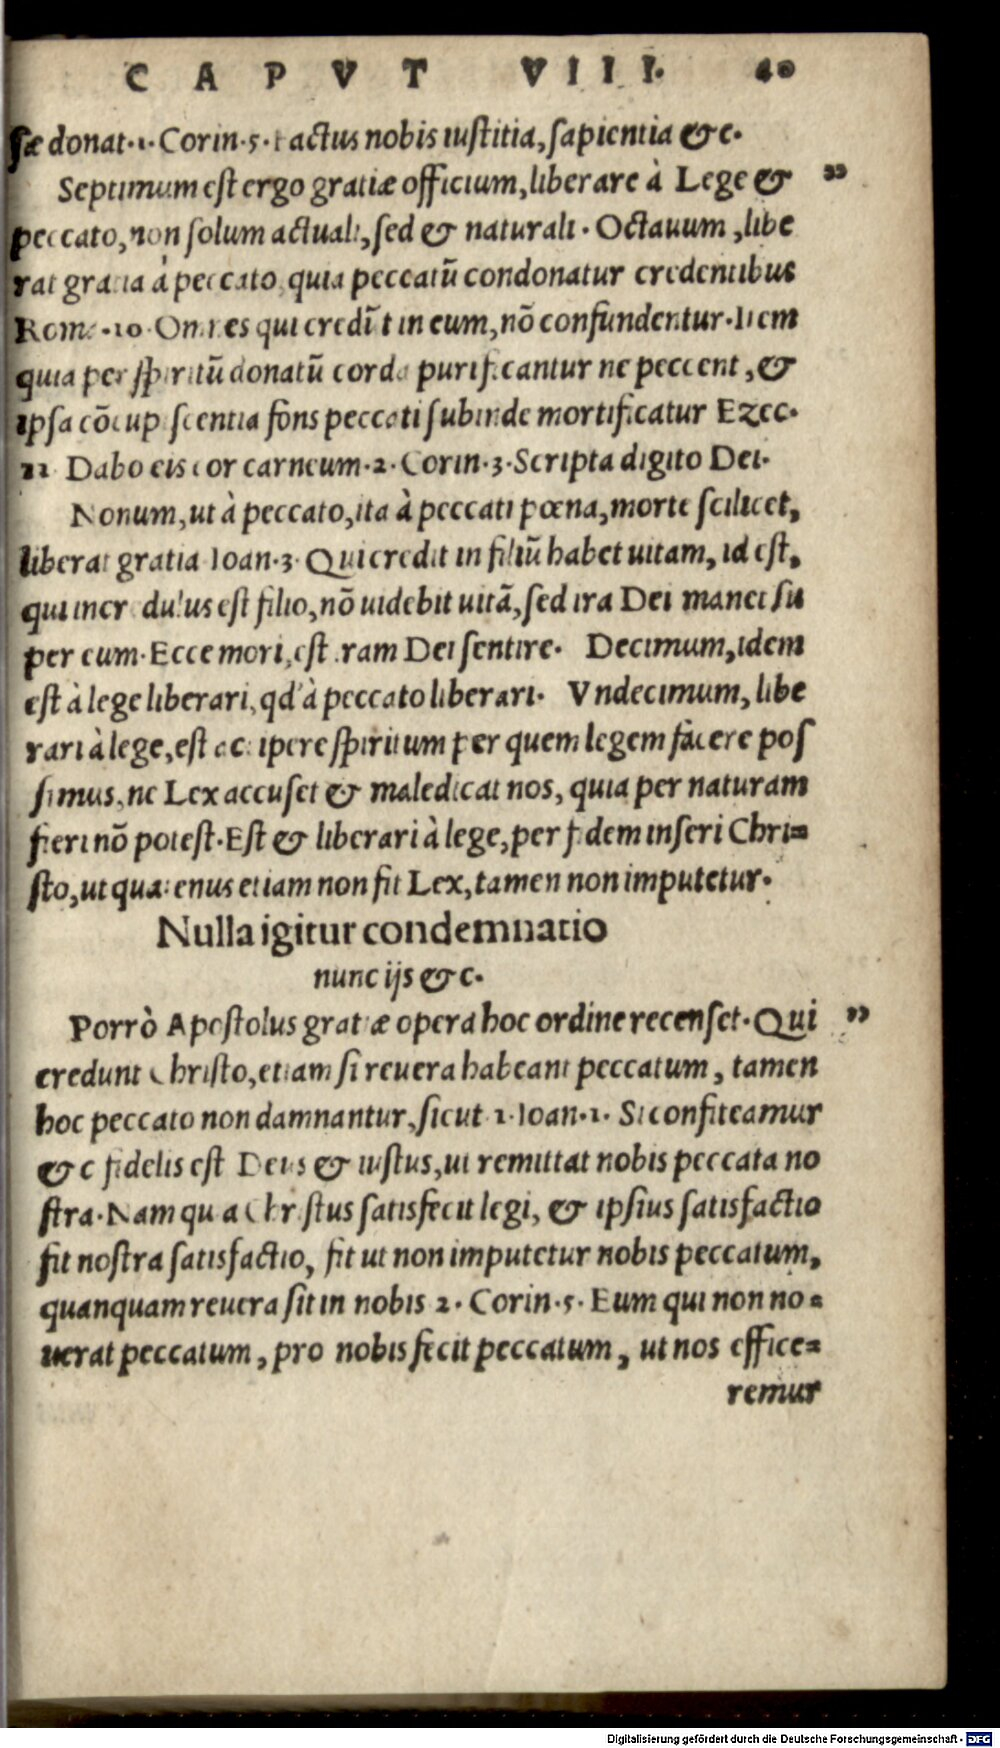 CAPVT VIII. 40
sæ donat.1.Corin.5.factus nobis iustitia, sapientia &c.
Septimum est ergo gratiæ officium, liberare à Lege & "
peccato, non solum actuali, sed & naturali. Octauum, libe
rat gratia à peccato, quia peccatū condonatur credentibus
Roma.10. Omnes qui credīt in eum, nō confundentur. Item
quia per spiritū donatū corda purificantur ne peccent, &
ipsa cōcupiscentia fons peccati subinde mortificatur Ezec.
11. Dabo eis cor carneum.2.Corin.3.Scripta digito Dei.
Nonum, ut à peccato, ita à peccati pœna, morte scilicet,
liberat gratia Ioan.3. Qui credit in filiū habet uitam, id est,
qui incredulus est filio, nō uidebit uitā, sed ira Dei manet su
per eum. Ecce mori, est iram Dei sentire. Decimum, idem
est à lege liberari, qd' à peccato liberari. Vndecimum, libe
rari à lege, est accipere spiritum per quem legem facere pos
simus, ne Lex accuset & maledicat nos, quia per naturam
fieri nō potest. Est & liberari à lege, per fidem inseri Chri=
sto, ut quatenus etiam non fit Lex, tamen non imputetur.
Nulla igitur condemnatio
nunc ijs &c.
Porrò Apostolus gratiæ opera hoc ordine recenset. Qui "
credunt Christo, etiam si reuera habeant peccatum, tamen
hoc peccato non damnantur, sicut 1.Ioan.1. Si confiteamur
&c fidelis est Deus & iustus, ut remittat nobis peccata no
stra. Nam quia Christus satisfecit legi, & ipsius satisfactio
fit nostra satisfactio, fit ut non imputetur nobis peccatum,
quanquam reuera sit in nobis 2. Corin.5. Eum qui non no=
uerat peccatum, pro nobis fecit peccatum, ut nos effice=
remur
Digitalisierung gefördert durch die Deutsche Forschungsgemeinschaft - DFG